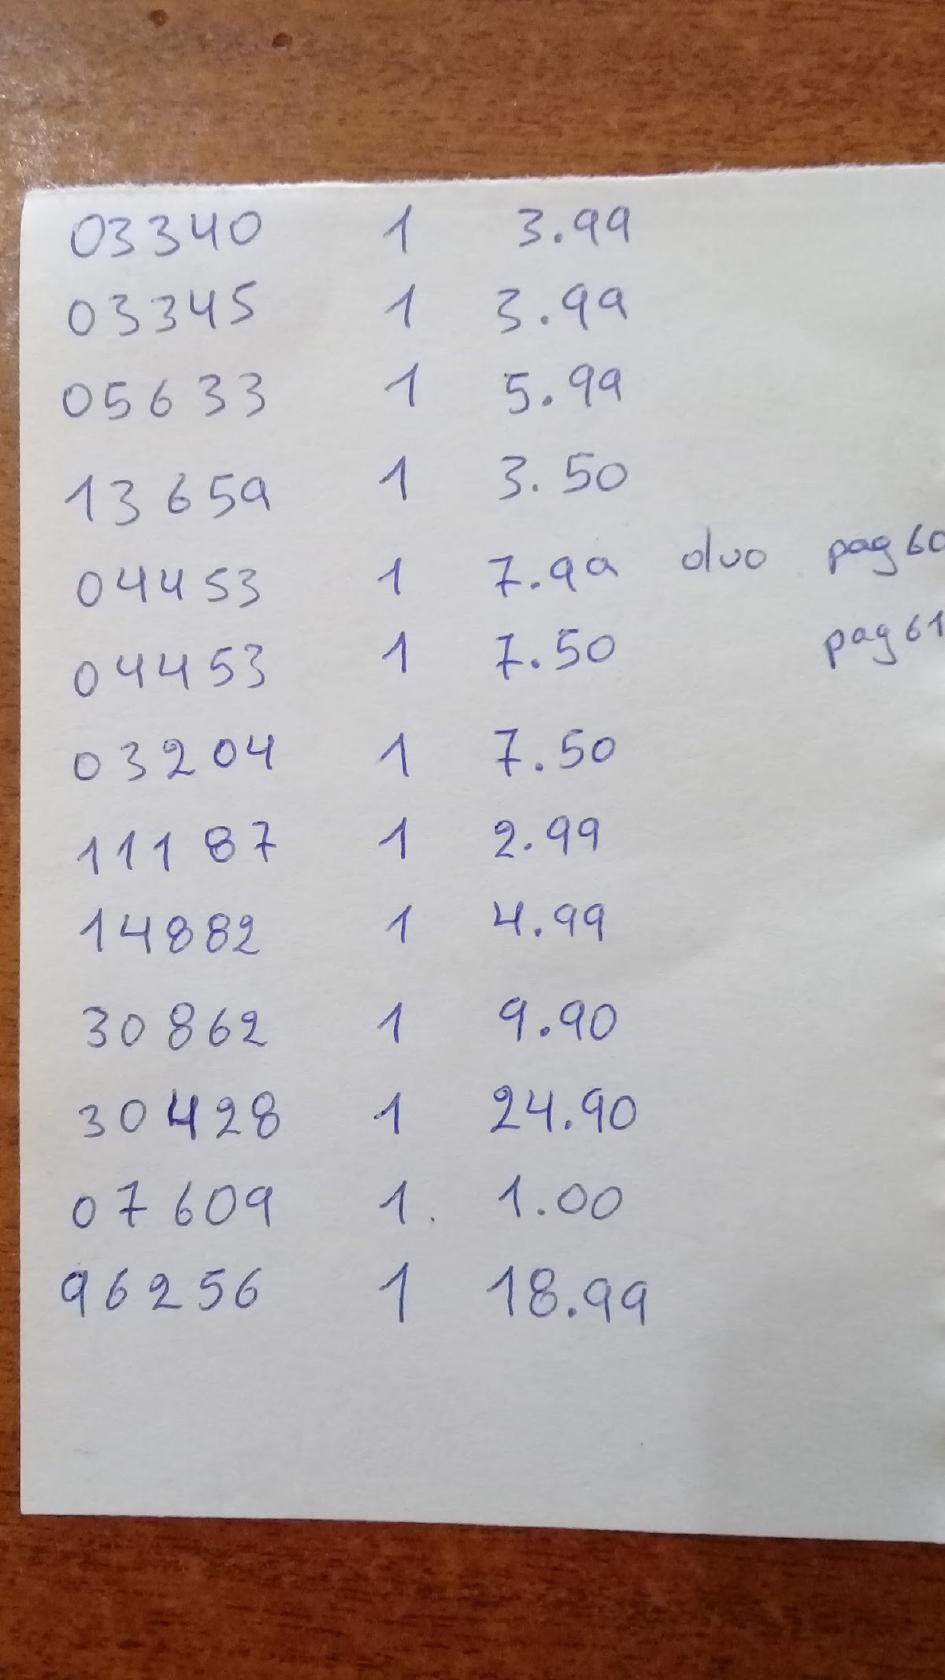 03340 1 3.99
03345 1 3.99
05633 1 5.99
13659 1 3.50
04453 1 7.99 duo pag 60
04453 1 7.50 pag 61
03204 1 7.50
11187 1 2.99
14882 1 4.99
30862 1 9.90
30428 1 24.90
07609 1. 1.00
96256 1 18.99